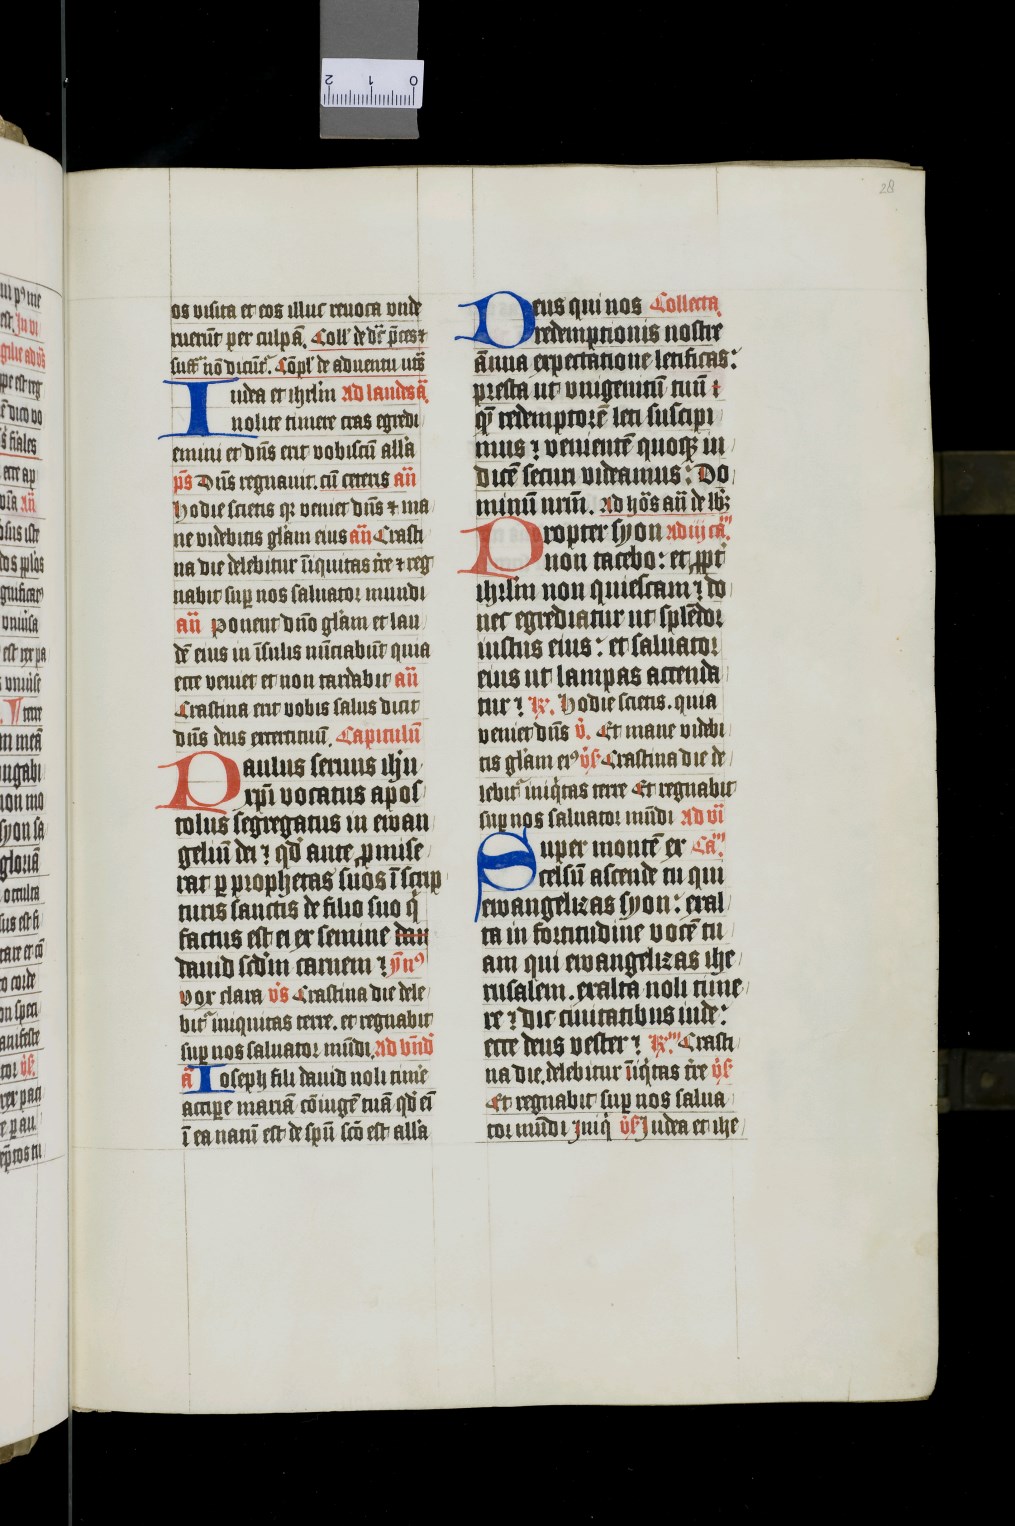 28
os visita et eos illuc revoca unde
ruerūt per culpā. Coll' de dr̄ p̄ces ⁊
suff' nō dicūt̄. Cōpl' de adventu uts̄
Iudea et ihrlm̄ Ad laudes ā
nolite timere cras egredi
emini et dn̄s erit vobiscū all'a
p̄s Dn̄s regnavit. cū ceteris an̄
hodie scietis qz veniet dn̄s ⁊ ma
ne videbitis gl'am eius an̄ Crasti
na die delebitur īiquitas tr̄e ⁊ reg
nabit sup nos salvator mundi
an̄ ponent dn̄o gl'am et lau
dē eius in īsulis nūciabūt quia
ecce veniet et non tardabit an̄
Crastina erit vobis salus dicit
dn̄s deus exercituū. Capitulū
Paulus servus ihu
xpī vocatus apos
tolus segregatus in ewan
geliū dei ⁊ qd̄ ante promise
rat p prophetas suos ī scrip
turis sanctis de filio suo q̄
factus est ei ex semine dau
david scdm̄ carnem ⁊ ȳn⁹
vox clara v̄s Crastina die dele
bit' iniquitas terre. et regnabit
sup nos salvator mūdi. Ad bn̄d̄
ā Ioseph fili david noli time
accipe mariā cōiugē tuā qd̄ eī
ī ea natū est de spū scō est all'a
Deus qui nos Collecta
redemptionis nostre
ānua expectatione letificas:
presta ut unigenitū tuū ⁊
qm̄ redemptorē leti suscipi
mus ⁊ venientē quoqz iu
dicē securi videamus: Do
minū nrm̄. Ad hōs an̄ de lbz
Propter syon Ad iij cā
non tacebo: et ppt̄
ihrlm̄ non quiescam ⁊ do
nec egrediatur ut splēdor
iustus eius: et salvator
eius ut lampas accenda
tur ⁊ R̄. Hodie scietis. quia
veniet dn̄s v̄. Et mane videbi
tis gl'am ei⁹ v̄s Crastina die de
lebit' iniq̄tas terre Et regnabit
sup nos salvator mūdi Ad vi
Super montē ex Cā
celsū ascende tu qui
ewangelizas syon: exal
ta in fortitudine vocē tu
am qui ewangelizas ihe
rusalem. exalta noli time
re ⁊ dic civitatibus iude:
ecce deus vester ⁊ R̄m Crasti
na die. delebitur īiq̄tas tr̄e v̄s
Et regnabit sup nos salva
tor mūdi Iniq̄ v̄s Iudea et ihe